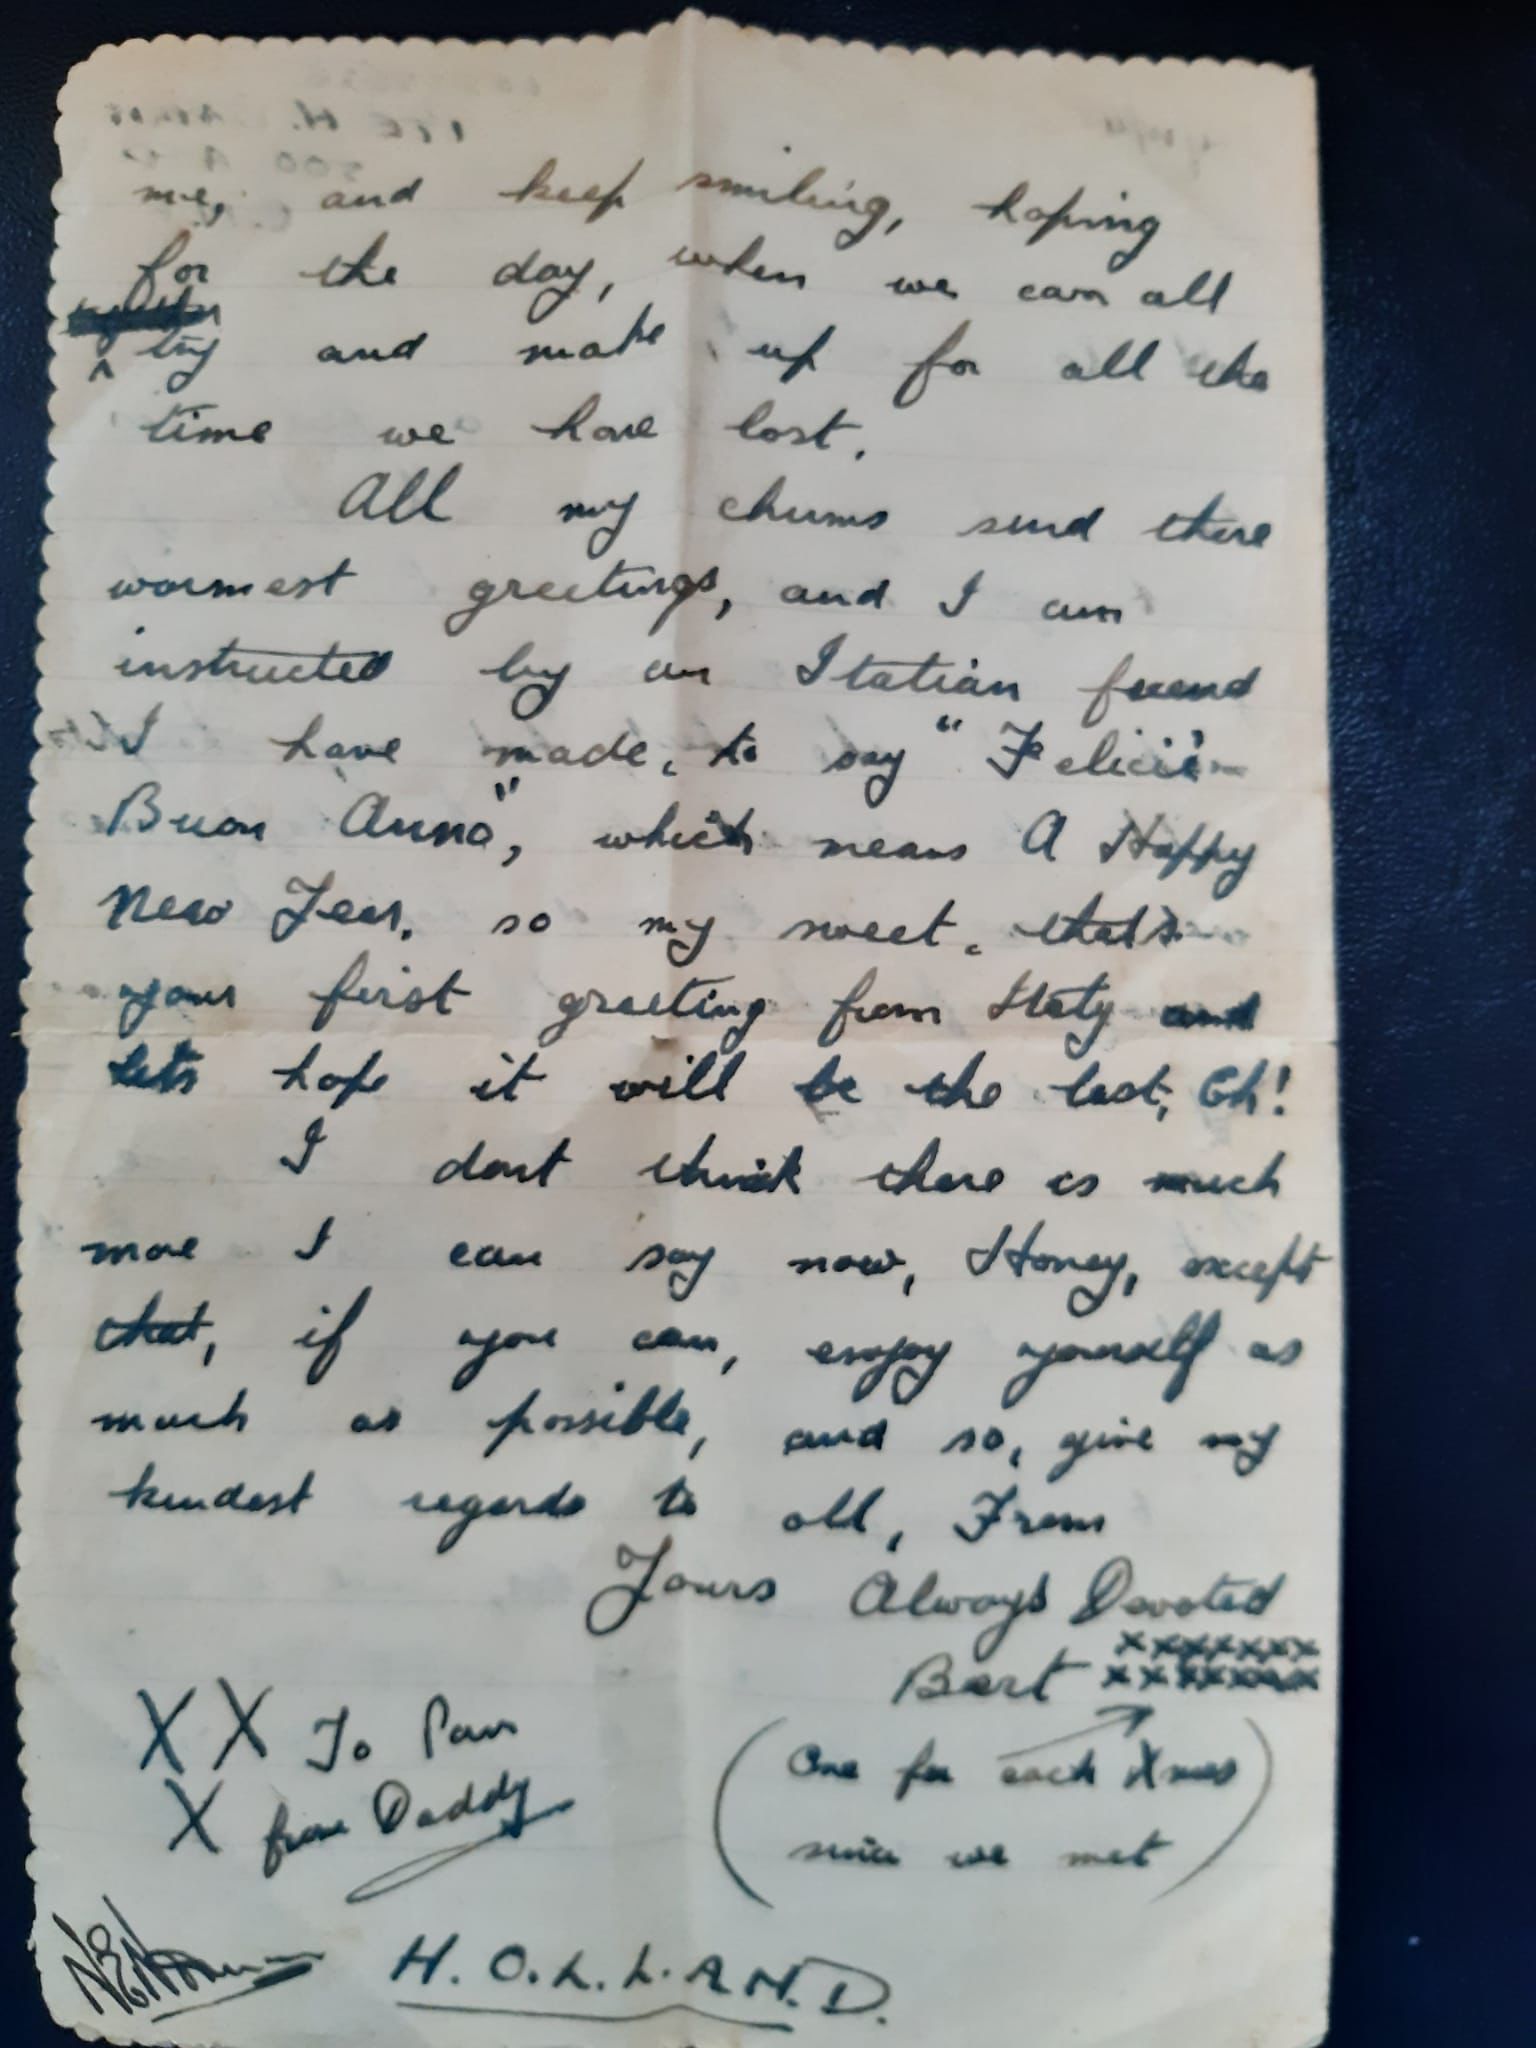 me, and keep smiling, hoping
for the day, when we can all
try and make up for all the
time we have lost.
All my chums send there
warmest greetings, and I am
instructed by an Italian friend
I have made, to say "Felicii
Buon Anno", which means A Happy
New Year, so my sweet, that's
your first greeting from Italy and
lets hope it will be the last, Eh!
I dont think there is much
more I can say now, Honey, except
that, if you can, enjoy yourself as
much as possible, and so, give my
kindest regards to all, From
Yours Always Devoted
xxxxxxx
Bert xxxxxxx
X X To Pam
X from Daddy
(One for each Xmas
since we met)
H.O.L.L.A.N.D.